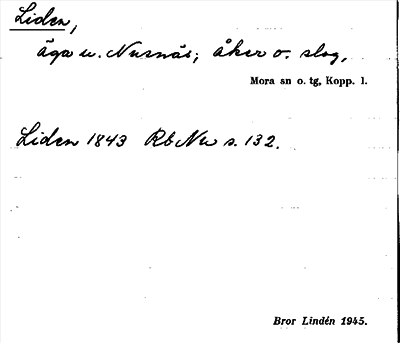 Liden,
äga u. Nusnäs; åker o. slog,
Mora sn o. tg, Kopp. l.
Liden 1843 Rb Nu s. 132.
Bror Lindén 1945.